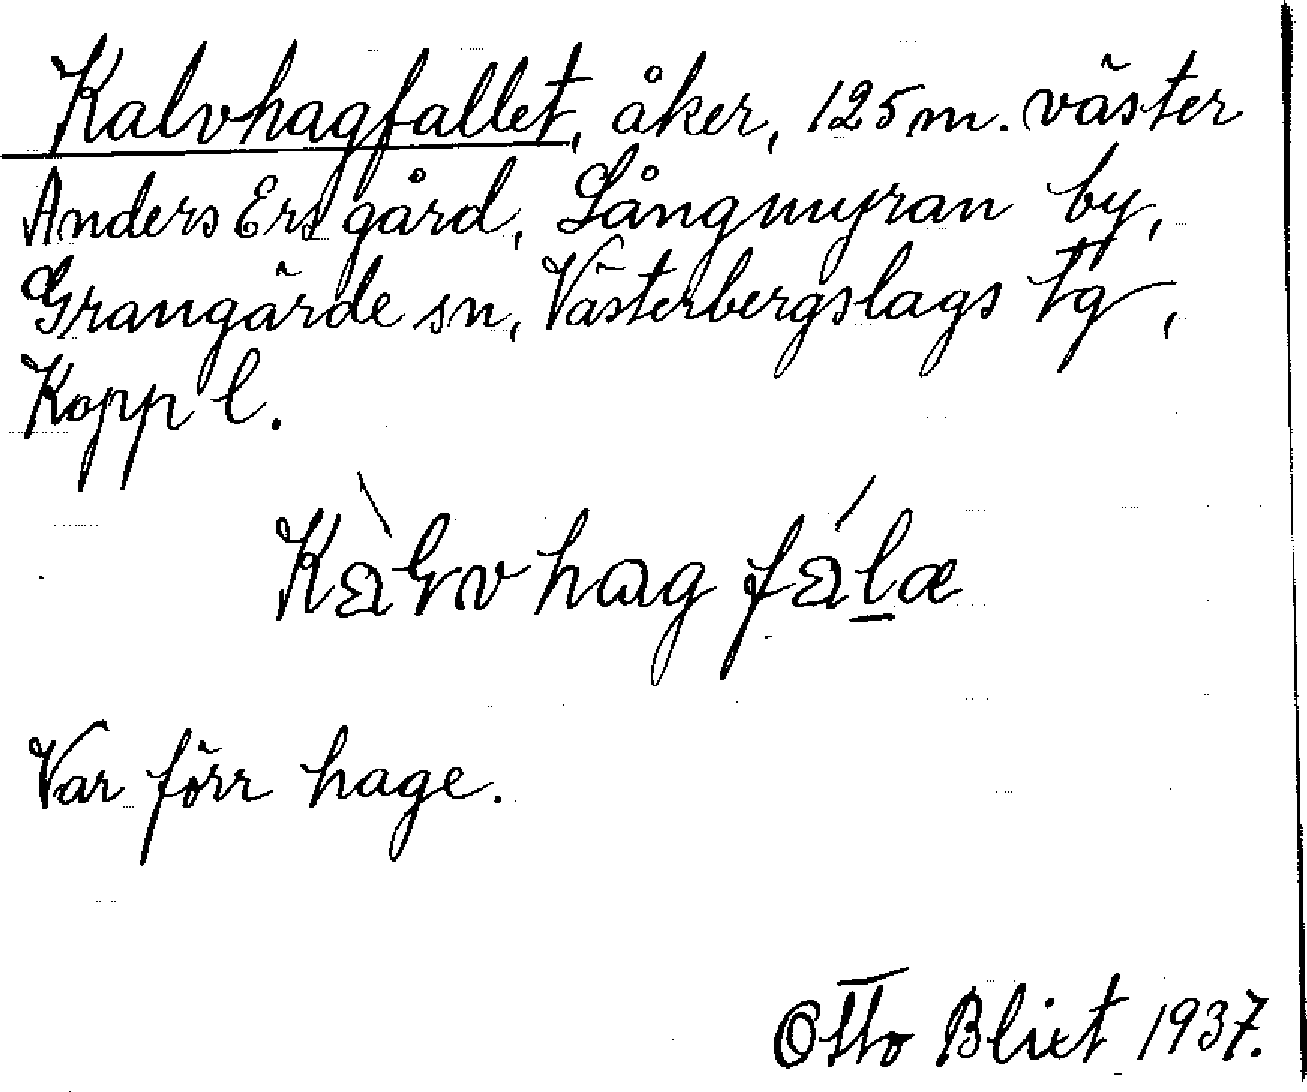 Kalvhagfallet, åker, 125 m. väster
Anders Ers gård, Långmyran by,
Grangärde sn, Västerbergslags tg,
Kopp l.
Kàlvhagfálæ
Var förr hage.
Otto Blixt 1937.